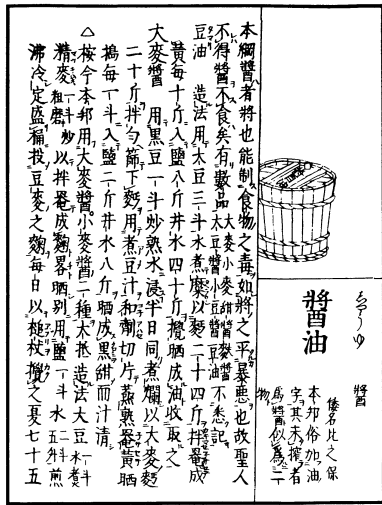 しやうゆ
醬油
醬
倭名比之保
本邦俗加油
字其未搾者
爲醬似爲二
物
本綱醬者將也能制食物之毒如將之平暴惡也故聖人
不得醬不食矣有數品大麥小麥甜醬麩醬大豆醬小豆醬不悉記
豆油 造法用大豆三斗水煮糜以麪二十四斤拌罨成
黄每十斤入鹽八斤井水四十斤攪晒成油收取之
大麥醬 用黑豆一斗炒熟水浸半日同煮爛以大麥麪
二十斤拌勻篩下麪用煮豆汁和劑切片蒸熟罨黄晒
搗每一斗入鹽二斤井水八斤晒成黑甜而汁清
△桉今本邦用大麥醬小麥醬二種大抵造法大豆一斗水煮
精麥一斗炒粗磨以拌罨成麴畧晒別用鹽一斗水二斗五升煎
沸冷定盛桶投豆麥之麴每日以槌杖攪之夏七十五